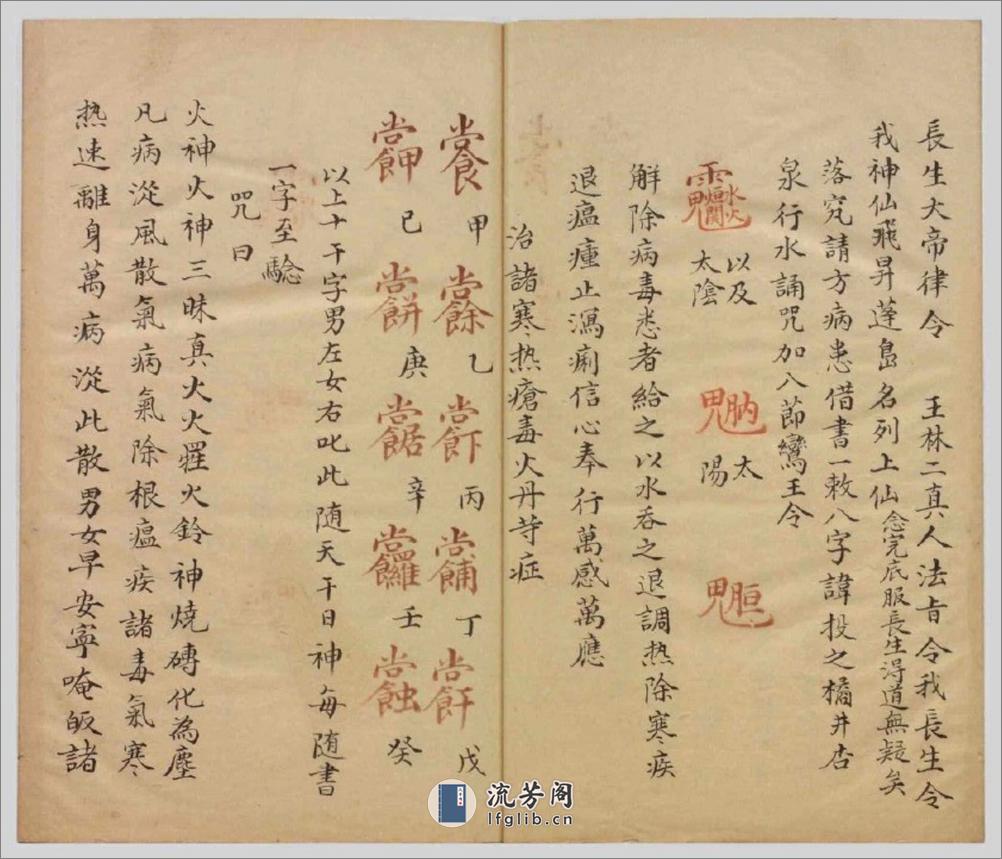 長生大帝律令　王林二真人法旨令我長生令
我神仙飛昇蓬島名列上仙念完底服長生淂道無疑矣
落究請方病患借書一敕八字諱投之橘井杏
泉行水誦咒加八節鸞王令
以及太陰　太陽
解除病毒患者給之以水吞之退調热除寒疾
退瘟瘴止瀉痢信心奉行萬感萬應
治諸寒热瘡毒火丹等症
甲　乙　丙　丁　戊
己　庚　辛　壬　癸
以上十干字男左女右叱此随天干日神每随書
一字至驗
咒曰
火神火神三昧真火火羅火鈴神燒磚化為塵
凡病從風散氣病氣除根瘟疾諸毒氣寒
热速離身萬病從此散男女早安寧唵皈諸
流芳阁
lfglib.cn